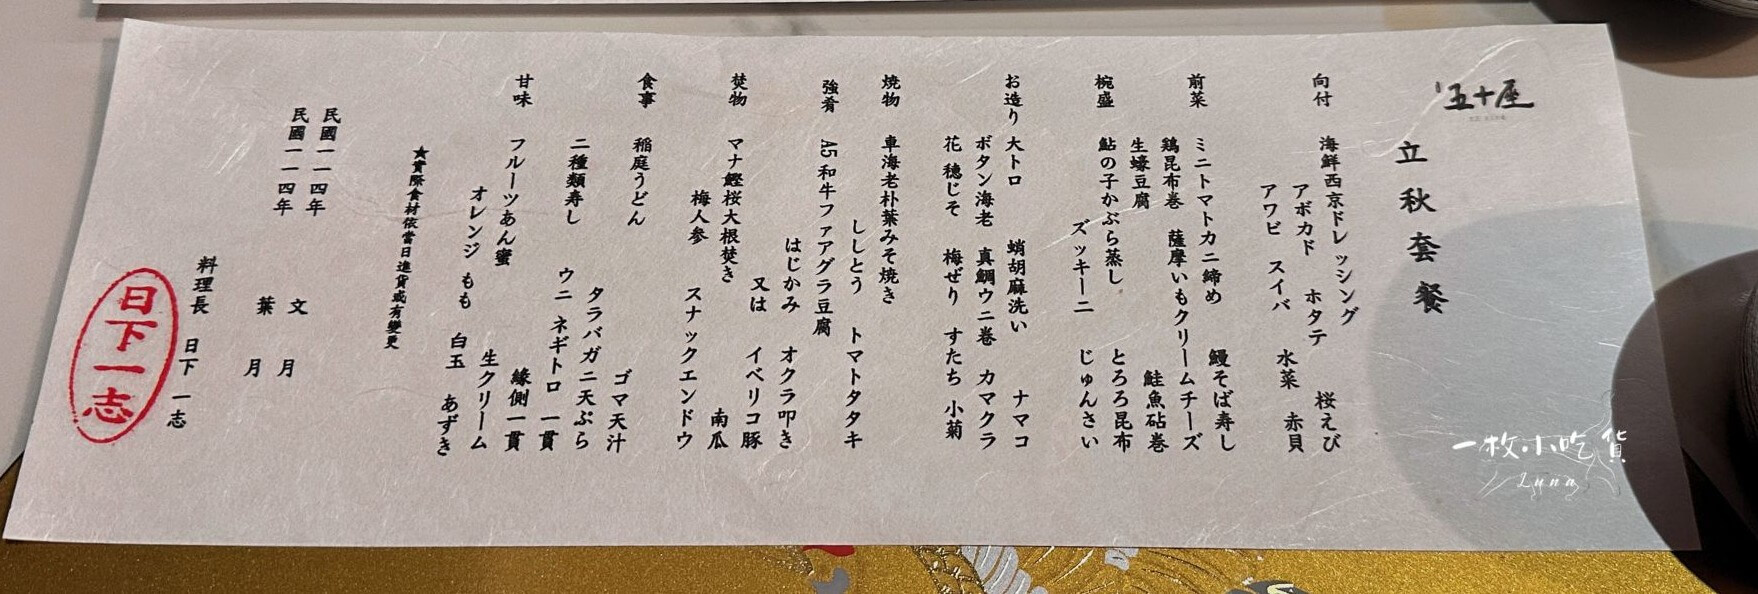 五十屋
立秋套餐
向付 海鮮西京ドレッシング 桜えび
アボカド ホタテ 水菜 赤貝
アワビ スイバ
前菜 ミニトマトカニ締め 鰻そば寿し
鶏昆布巻 薩摩いもクリームチーズ
生蠔豆腐 鮭魚砧巻
椀盛 鮎の子かぶら蒸し とろろ昆布
ズッキーニ じゅんさい
お造り 大トロ 蛸胡麻洗い ナマコ
ボタン海老 真鯛ウニ巻 カマクラ
花穂じそ 梅ぜり すたち 小菊
焼物 車海老朴葉みそ焼き
ししとう トマトタタキ
強肴 A5和牛ファアグラ豆腐
はじかみ オクラ叩き
又は イベリコ豚
焚物 マナ鰹桜大根焚き 南瓜
梅人参 スナックエンドウ
食事 稲庭うどん ゴマ天汁
タラバガニ天ぷら
二種類寿し ウニ ネギトロ 一貫
縁側一貫
甘味 フルーツあん蜜 生クリーム
オレンジ もも 白玉 あずき
★實際食材依當日進貨或有變更
民國一一四年 文月
民國一一四年 葉月
料理長 日下 一志
日下一志
一枚小吃貨
Luna